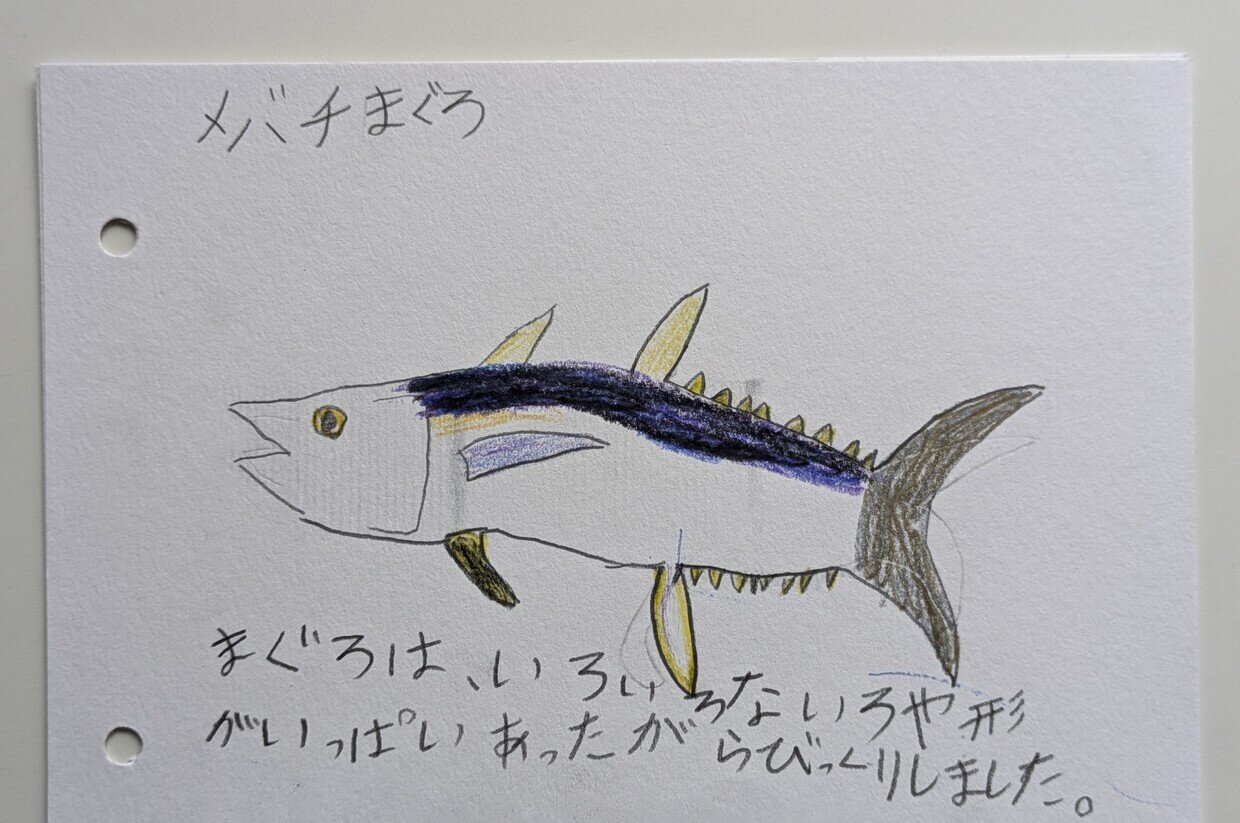 メバチまぐろ
まぐろは、いろいろないろや形
がいっぱいあったがらびっくりしました。